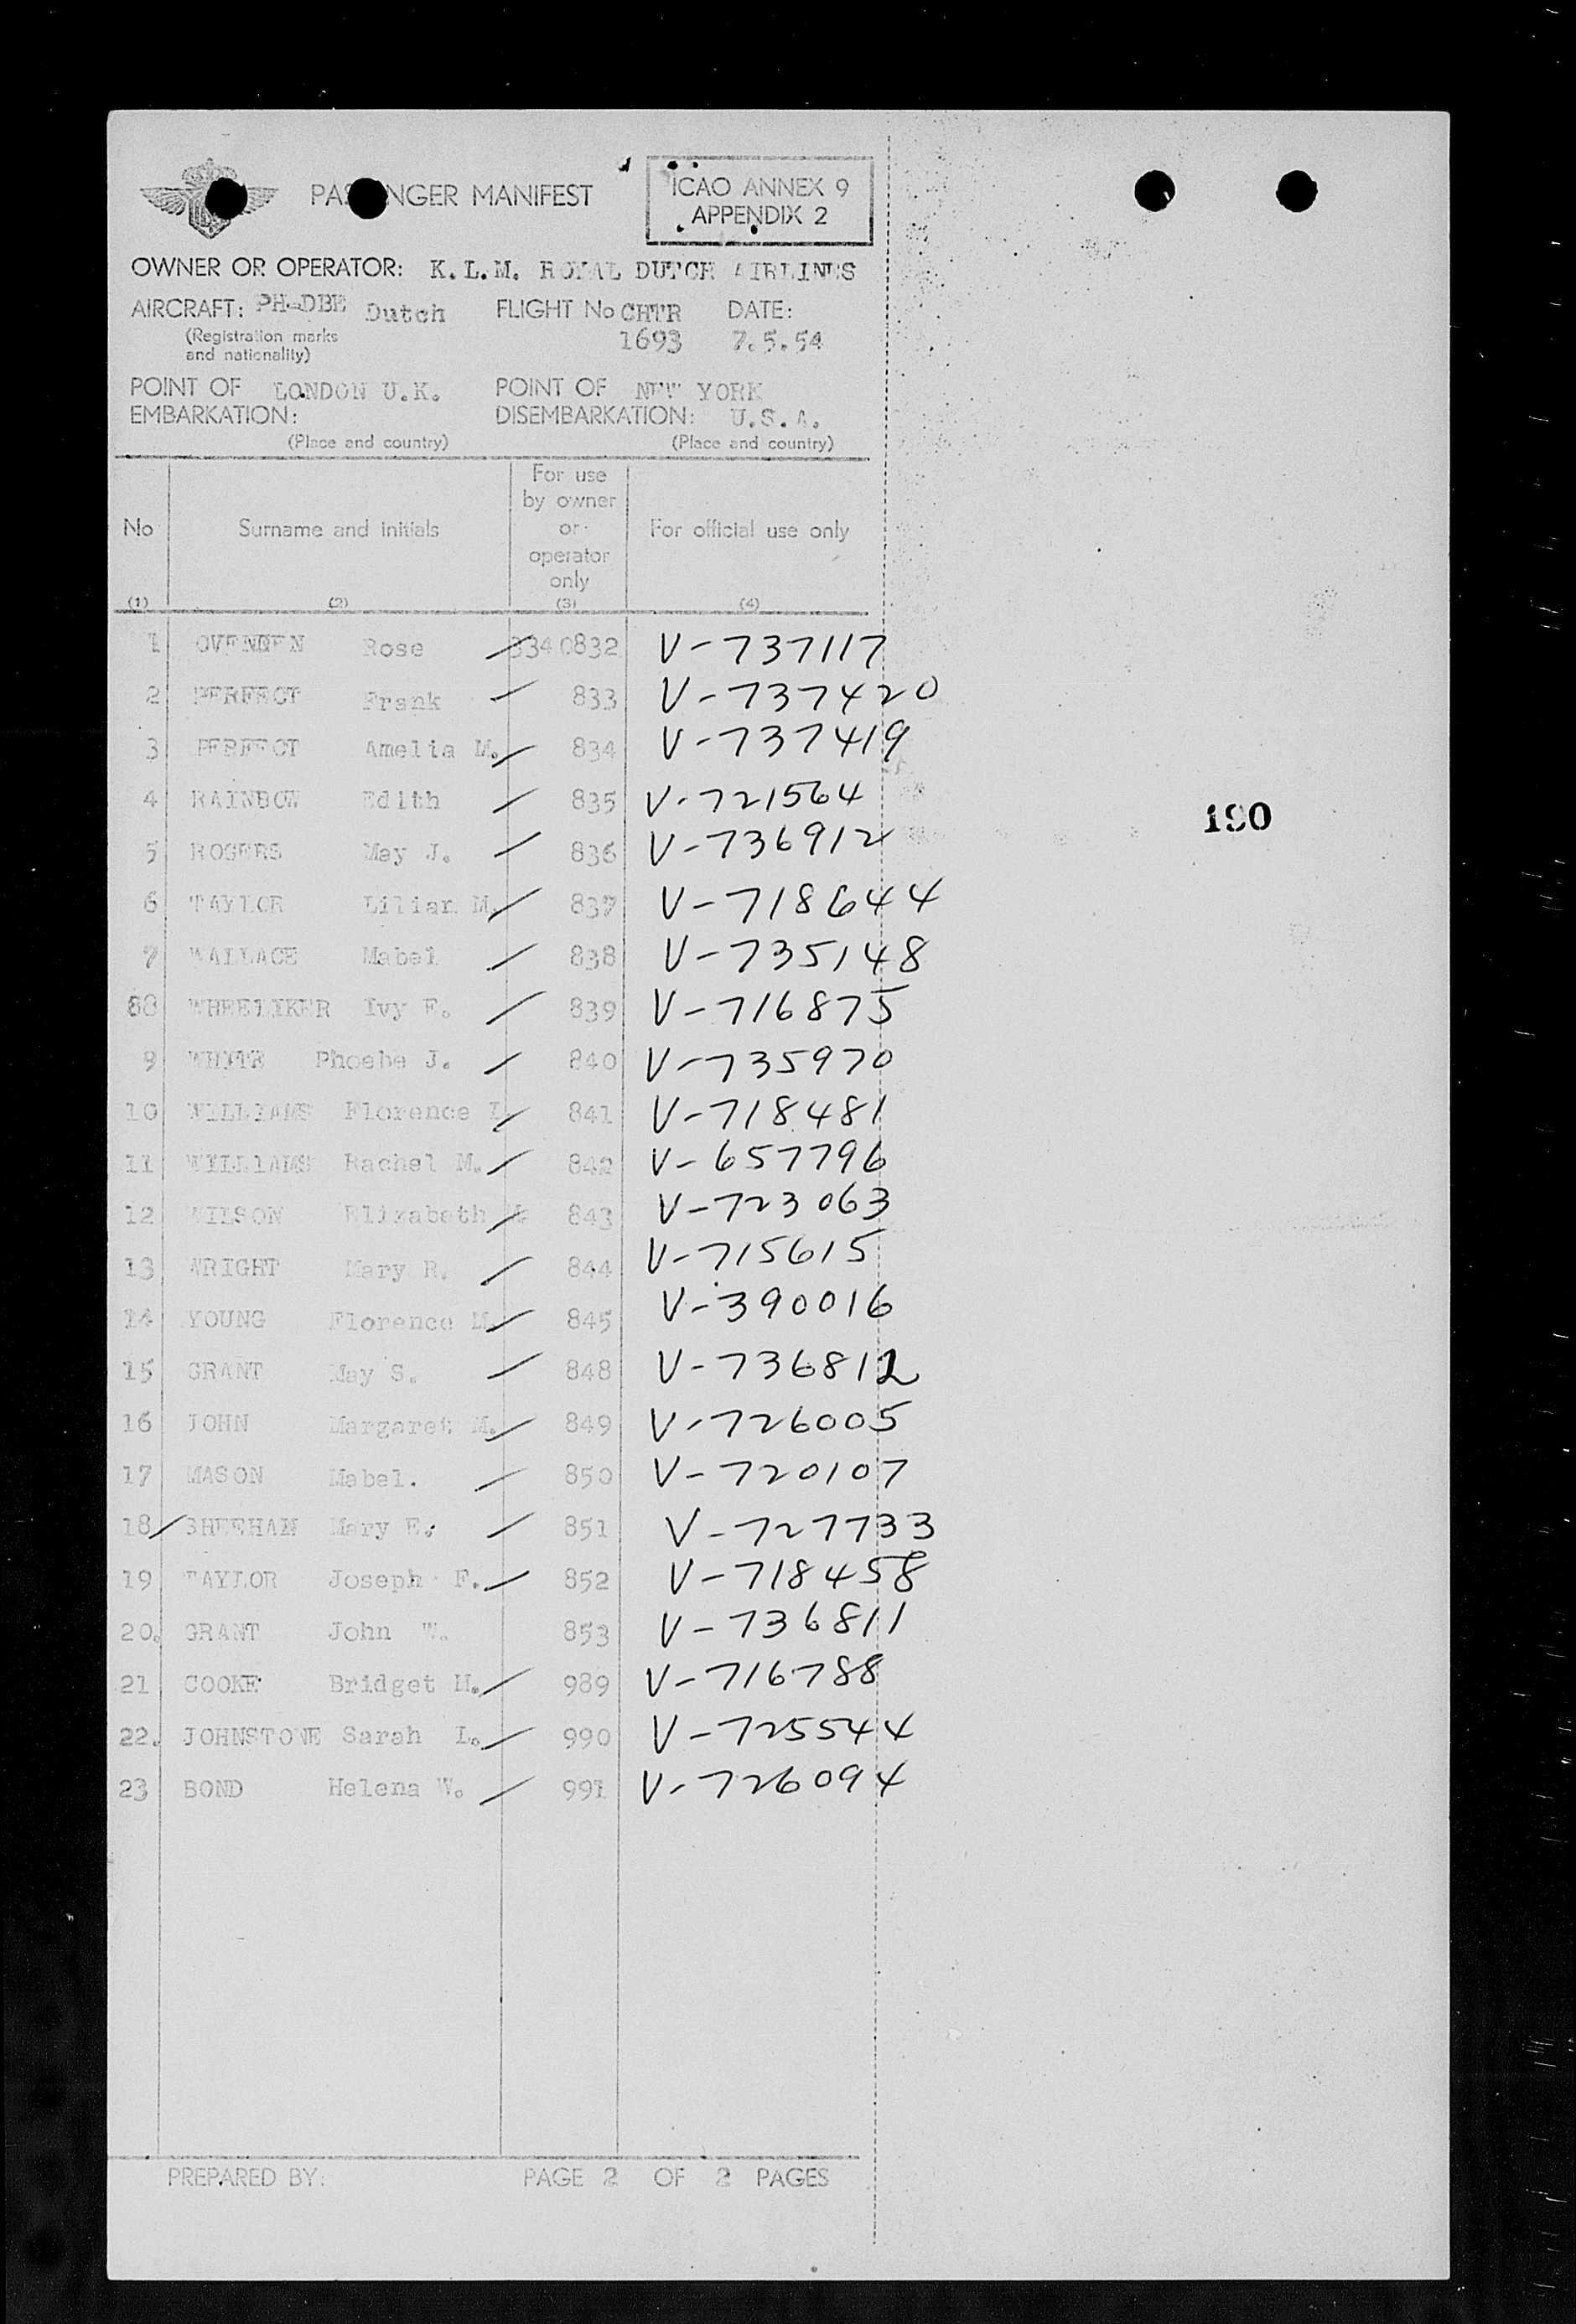 PASSENGER MANIFEST
ICAO ANNEX 9
APPENDIX 2
OWNER OR OPERATOR: K.L.M. ROYAL DUTCH AIRLINES
AIRCRAFT: PH-DBE Dutch FLIGHT No CHTR DATE:
(Registration marks 1693 7.5.54
and nationality)
POINT OF LONDON U.K. POINT OF NEW YORK
EMBARKATION: DISEMBARKATION: U.S.A.
(Place and country) (Place and country)
No Surname and initials For use by owner or operator only For official use only
(1) (2) (3) (4)
1 OVENDEN Rose 3340832 V-737117
2 PERFECT Frank 833 V-737420
3 PERFECT Amelia M. 834 V-737419
4 RAINBOW Edith 835 V-721564
5 ROGERS May J. 836 V-736912
6 TAYLOR Lilian M. 837 V-718644
7 WALLACE Mabel 838 V-735148
8 WHEELIKER Ivy E. 839 V-716875
9 WHYTE Phoebe J. 840 V-735970
10 WILLIAMS Florence 841 V-718481
11 WILLIAMS Rachel M. 842 V-657796
12 WILSON Elizabeth 843 V-723063
13 WRIGHT Mary R. 844 V-715615
14 YOUNG Florence M. 845 V-390016
15 GRANT May S. 848 V-736812
16 JOHN Margaret M. 849 V-726005
17 MASON Mabel. 850 V-720107
18 SHEEHAN Mary E. 851 V-727733
19 TAYLOR Joseph F. 852 V-718458
20. GRANT John W. 853 V-736811
21 COOKE Bridget M. 989 V-716788
22. JOHNSTONE Sarah L. 990 V-725544
23 BOND Helena W. 991 V-726094
190
PREPARED BY: PAGE 2 OF 2 PAGES